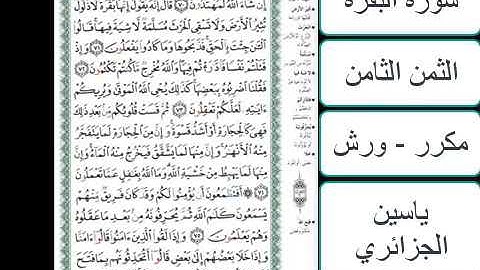 إِن شَآءَ اَللَّهُ لَمُهْتَدُونَ ۝ قَالَ إِنَّهُۥ يَقُولُ إِنَّهَا بَقَرَةٌ لَّا ذَلُولٌ
تُثِيرُ اُلَارْضَ وَلَا تَسْقِے اِلْحَرْثَ مُسَلَّمَةٌ لَّا شِيَةَ فِيهَا قَالُواْ
اُلَٰنَ جِئْتَ بِالْحَقِّ فَذَبَحُوهَا وَمَا كَادُواْ يَفْعَلُونَ ۝ وَإِذْ
قَتَلْتُمْ نَفْساً فَادَّٰرَٰٔتُمْ فِيهَا وَاللَّهُ مُخْرِجٌ مَّا كُنتُمْ تَكْتُمُونَ
فَقُلْنَا اَضْرِبُوهُ بِبَعْضِهَا كَذَٰلِكَ يُحْيِ اِللَّهُ اُلْمَوْتَىٰ وَيُرِيكُمُۥٓ
ءَايَٰتِهِۦ لَعَلَّكُمْ تَعْقِلُونَ ۝ ثُمَّ قَسَتْ قُلُوبُكُم مِّنۢ بَعْدِ ذَٰلِكَ
فَهِيَ كَالْحِجَارَةِ أَوَ اَشَدُّ قَسْوَةً وَإِنَّ مِنَ اَلْحِجَارَةِ لَمَا يَتَفَجَّرُ
مِنْهُ اُلَانْهَٰرُ وَإِنَّ مِنْهَا لَمَا يَشَّقَّقُ فَيَخْرُجُ مِنْهُ اُلْمَآءُ وَإِنَّ
مِنْهَا لَمَا يَهْبِطُ مِنْ خَشْيَةِ اِللَّهِ وَمَا اَللَّهُ بِغَٰفِلٍ عَمَّا تَعْمَلُونَ
۝ أَفَتَطْمَعُونَ أَنْ يُّومِنُواْ لَكُمْ وَقَدْ كَانَ فَرِيقٌ مِّنْهُمْ
يَسْمَعُونَ كَلَٰمَ اَللَّهِ ثُمَّ يُحَرِّفُونَهُۥ مِنۢ بَعْدِ مَا عَقَلُوهُ
وَهُمْ يَعْلَمُونَ ۝ وَإِذَا لَقُواْ اُلذِينَ ءَامَنُواْ قَالُوٓاْ ءَامَنَّا
وَإِذَا خَلَا بَعْضُهُمُۥٓ إِلَىٰ بَعْضٍ قَالُوٓاْ أَتُحَدِّثُونَهُم بِمَا فَتَحَ
سورة البقرة
الثمن الثامن
مكرر - ورش
ياسين
الجزائري